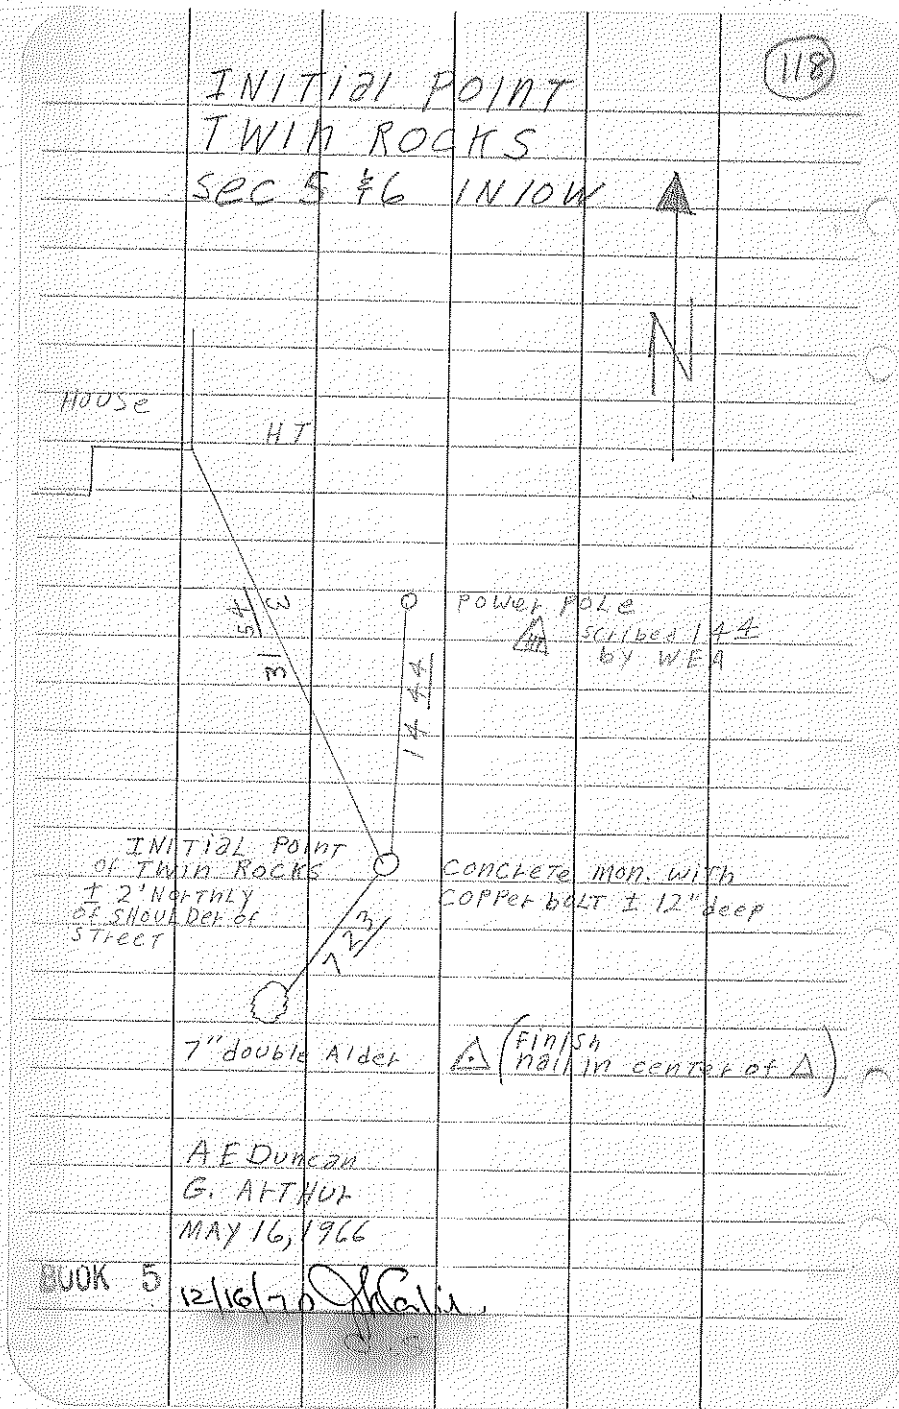 118
INITial POINT
TWIN ROCKS
Sec 5 & 6 1N 10W
N
House
HT
31 54
3
14 44
Power Pole
scribed 144
by WEA
INITIAL Point
OF TWIN ROCKS
± 2' Northly
of SHOULDER of
STreeT
Concrete mon. with
Copper bolt ± 12" deep
7 23
7" double Alder
(Finish
nail in center of Δ)
A E Duncan
G. ARTHUR
MAY 16, 1966
BOOK 5
12/16/70